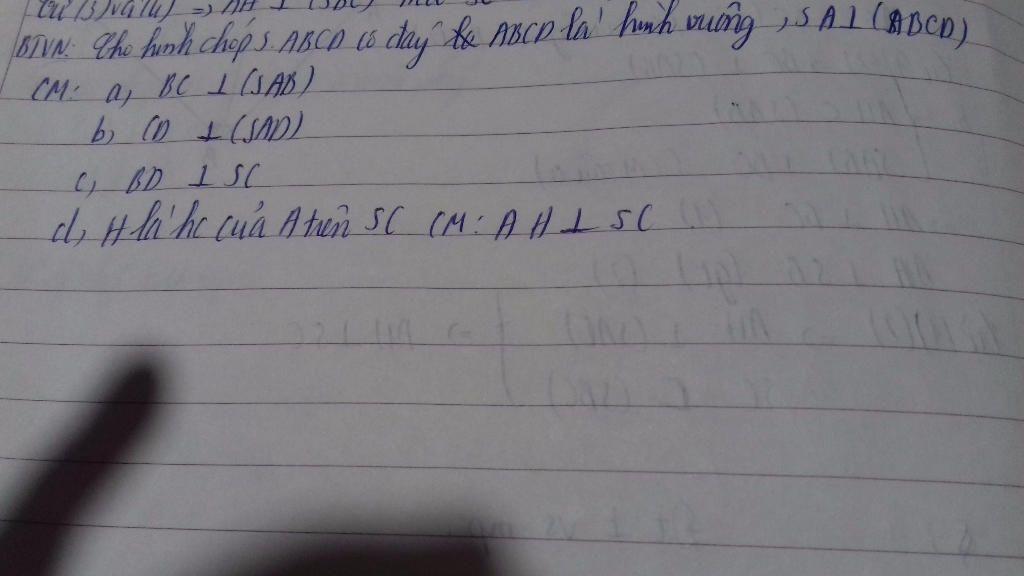 từ (3) và (4) => AH ⊥ (SBC)
BTVN: Cho hình chóp S.ABCD có đáy ABCD là hình vuông, SA ⊥ (ABCD)
CM: a, BC ⊥ (SAB)
b, CD ⊥ (SAD)
c, BD ⊥ SC
d, H là hc của A trên SC CM: AH ⊥ SC